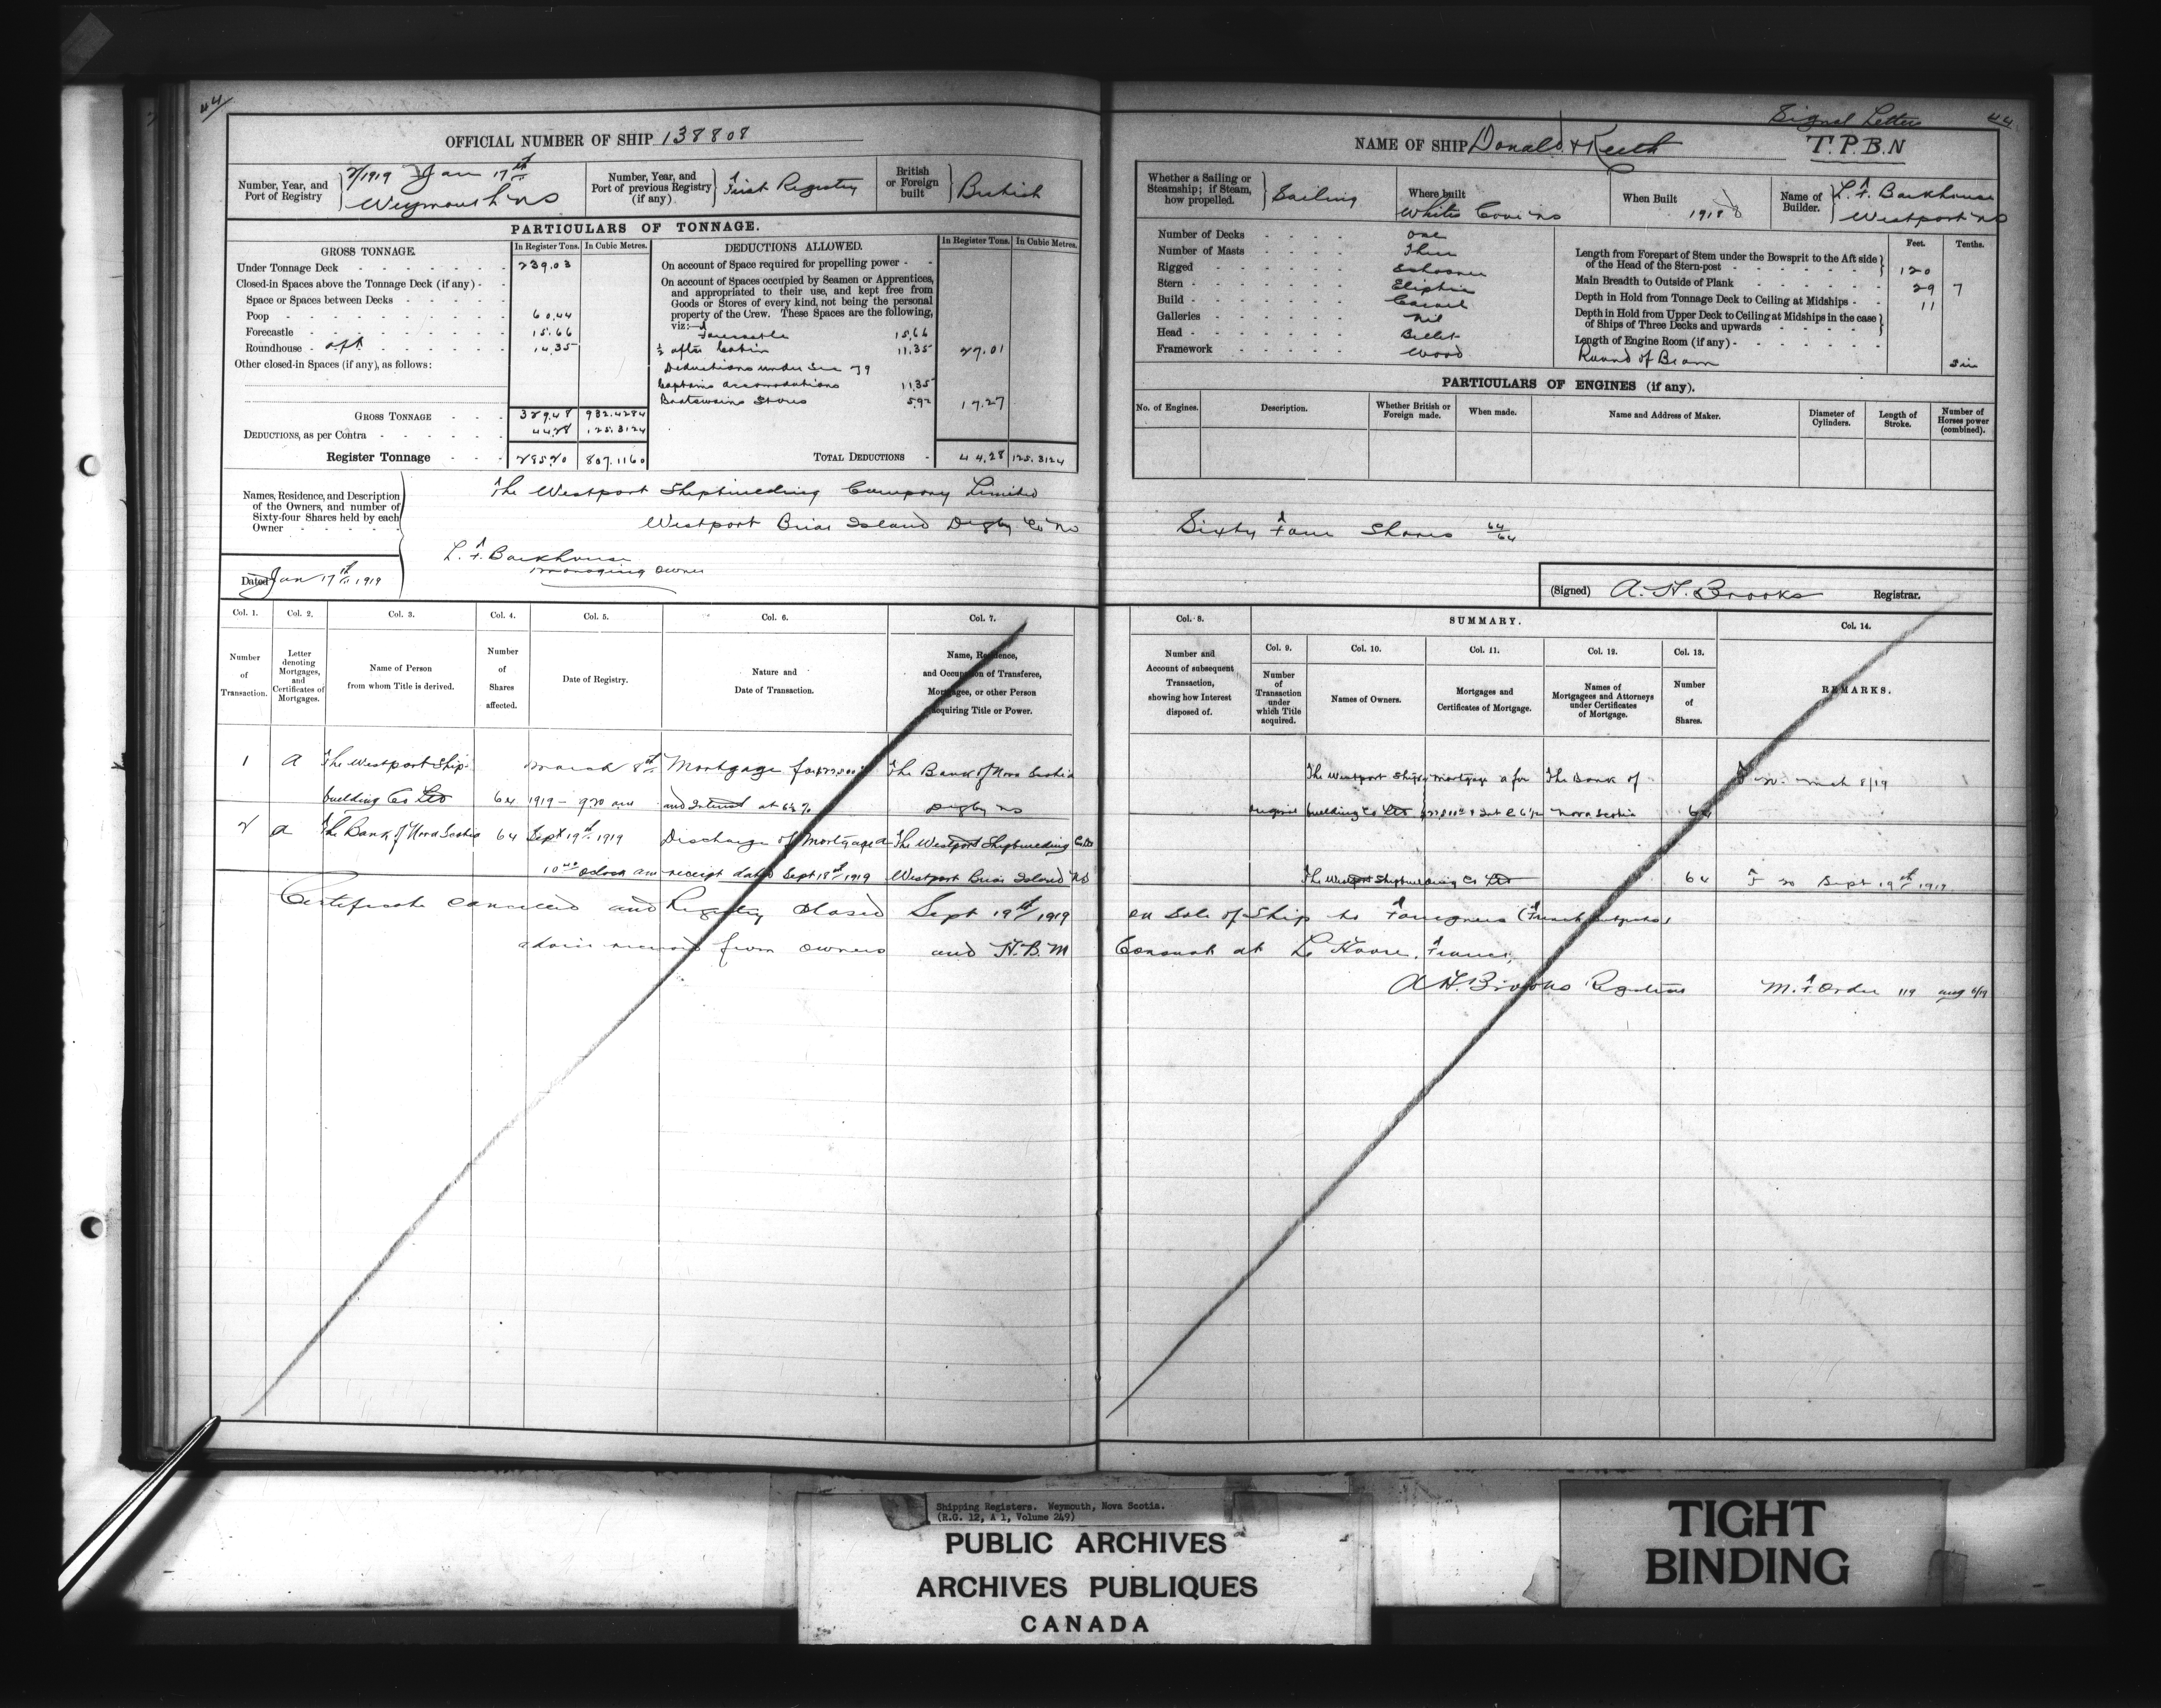 44
OFFICIAL NUMBER OF SHIP 138808
Number, Year, and Port of Registry
2/1919 Jan 17th
Weymouth NS
Number, Year, and Port of previous Registry (if any)
First Registry
British or Foreign built
British
PARTICULARS OF TONNAGE.
GROSS TONNAGE.
In Register Tons. In Cubic Metres.
Under Tonnage Deck 239.03
Closed-in Spaces above the Tonnage Deck (if any)
Space or Spaces between Decks
Poop 60.44
Forecastle 15.66
Roundhouse - aft 14.35
Other closed-in Spaces (if any), as follows:
GROSS TONNAGE 329.48 932.4284
DEDUCTIONS, as per Contra 44.28 125.3124
Register Tonnage 285.20 807.1160
DEDUCTIONS ALLOWED.
In Register Tons. In Cubic Metres.
On account of Space required for propelling power
On account of Spaces occupied by Seamen or Apprentices,
and appropriated to their use, and kept free from
Goods or Stores of every kind, not being the personal
property of the Crew. These Spaces are the following,
viz:—
Forecastle 15.66
½ after Cabin 11.35 27.01
Deductions under Sec 79
Captains accomodations 11.35
Boatswains Stores 5.92 17.27
TOTAL DEDUCTIONS 44.28 125.3124
Names, Residence, and Description
of the Owners, and number of
Sixty-four Shares held by each
Owner
The Westport Shipbuilding Company Limited
Westport Briar Island Digby Co NS
L. F. Backhouse
managing owner
Dated Jan 17th 1919
Signal Letters 44
NAME OF SHIP Donald & Keith T.P.B.N
Whether a Sailing or Steamship; if Steam, how propelled.
Sailing
Where built
Whites Cove NS
When Built
1918
Name of Builder.
L. F. Backhouse
Westport NS
Number of Decks one
Number of Masts Three
Rigged Schooner
Stern Eliptic
Build Carvel
Galleries Nil
Head Billet
Framework Wood
Feet. Tenths.
Length from Forepart of Stem under the Bowsprit to the Aft side
of the Head of the Stern-post 120
Main Breadth to Outside of Plank 29 7
Depth in Hold from Tonnage Deck to Ceiling at Midships 11
Depth in Hold from Upper Deck to Ceiling at Midships in the case
of Ships of Three Decks and upwards
Length of Engine Room (if any)
Round of Beam
PARTICULARS OF ENGINES (if any).
No. of Engines. Description. Whether British or Foreign made. When made. Name and Address of Maker. Diameter of Cylinders. Length of Stroke. Number of Horses power (combined).
Sixty Four Shares 64/64
(Signed) A. H. Brooks Registrar.
Col. 1. Col. 2. Col. 3. Col. 4. Col. 5. Col. 6. Col. 7.
Number of Transaction.
Letter denoting Mortgages, and Certificates of Mortgages.
Name of Person from whom Title is derived.
Number of Shares affected.
Date of Registry.
Nature and Date of Transaction.
Name, Residence, and Occupation of Transferee, Mortgagee, or other Person acquiring Title or Power.
Col. 8. SUMMARY. Col. 14.
Number and Account of subsequent Transaction, showing how Interest disposed of.
Col. 9. Col. 10. Col. 11. Col. 12. Col. 13.
Number of Transaction under which Title acquired.
Names of Owners.
Mortgages and Certificates of Mortgage.
Names of Mortgagees and Attorneys under Certificates of Mortgage.
Number of Shares.
REMARKS.
1 A The Westport Ship- March 8th Mortgage for The Bank of Nova Scotia
building Co Ltd 64 1919 - 9 20 am and Interest at 6½% Digby NS
The Westport Ship Mortgage A for The Bank of
original building Co Ltd Nova Scotia 64
2 A The Bank of Nova Scotia 64 Sept 19th 1919 Discharge of Mortgage A The Westport Shipbuilding Co Ltd
10 oclock am receipt dated Sept 18th 1919 Westport Briar Island NS
The Westport Shipbuilding Co Ltd 64 Sept 19th 1919
Certificate cancelled and Registry closed Sept 19th 1919 on Sale of Ship to Foreigners
advice received from owners and H.B.M Consul at Le Havre, France,
A H. Brooks Registrar
Shipping Registers. Weymouth, Nova Scotia.
(R.G. 12, A 1, Volume 249)
PUBLIC ARCHIVES
ARCHIVES PUBLIQUES
CANADA
TIGHT
BINDING